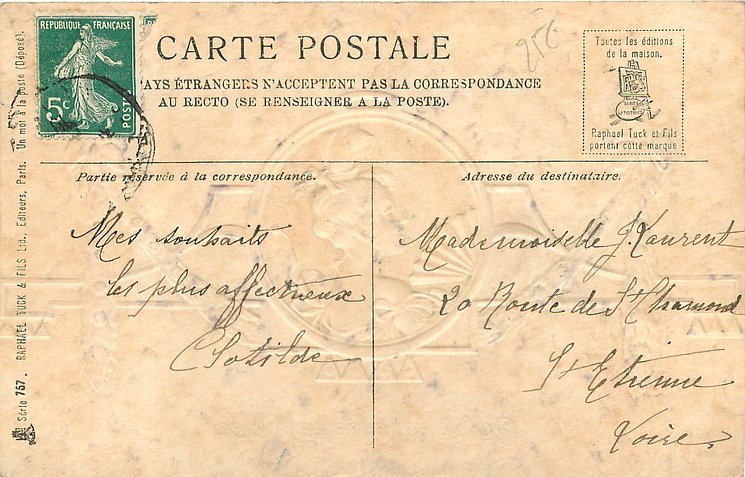 RÉPUBLIQUE FRANÇAISE
5c
POSTES
CARTE POSTALE
PAYS ÉTRANGERS N'ACCEPTENT PAS LA CORRESPONDANCE
AU RECTO (SE RENSEIGNER A LA POSTE).
25c
Toutes les éditions
de la maison.
Raphael Tuck et Fils
portent cette marque
Partie réservée à la correspondance.
Mes souhaits
les plus affectueux
Clotilde
Adresse du destinataire.
Mademoiselle J. Laurent
20 Route de St Chamond
St Etienne
Loire
Série 757. RAPHAEL TUCK & FILS Ltd., Editeurs, Paris. Un mot à la poste (Déposé).